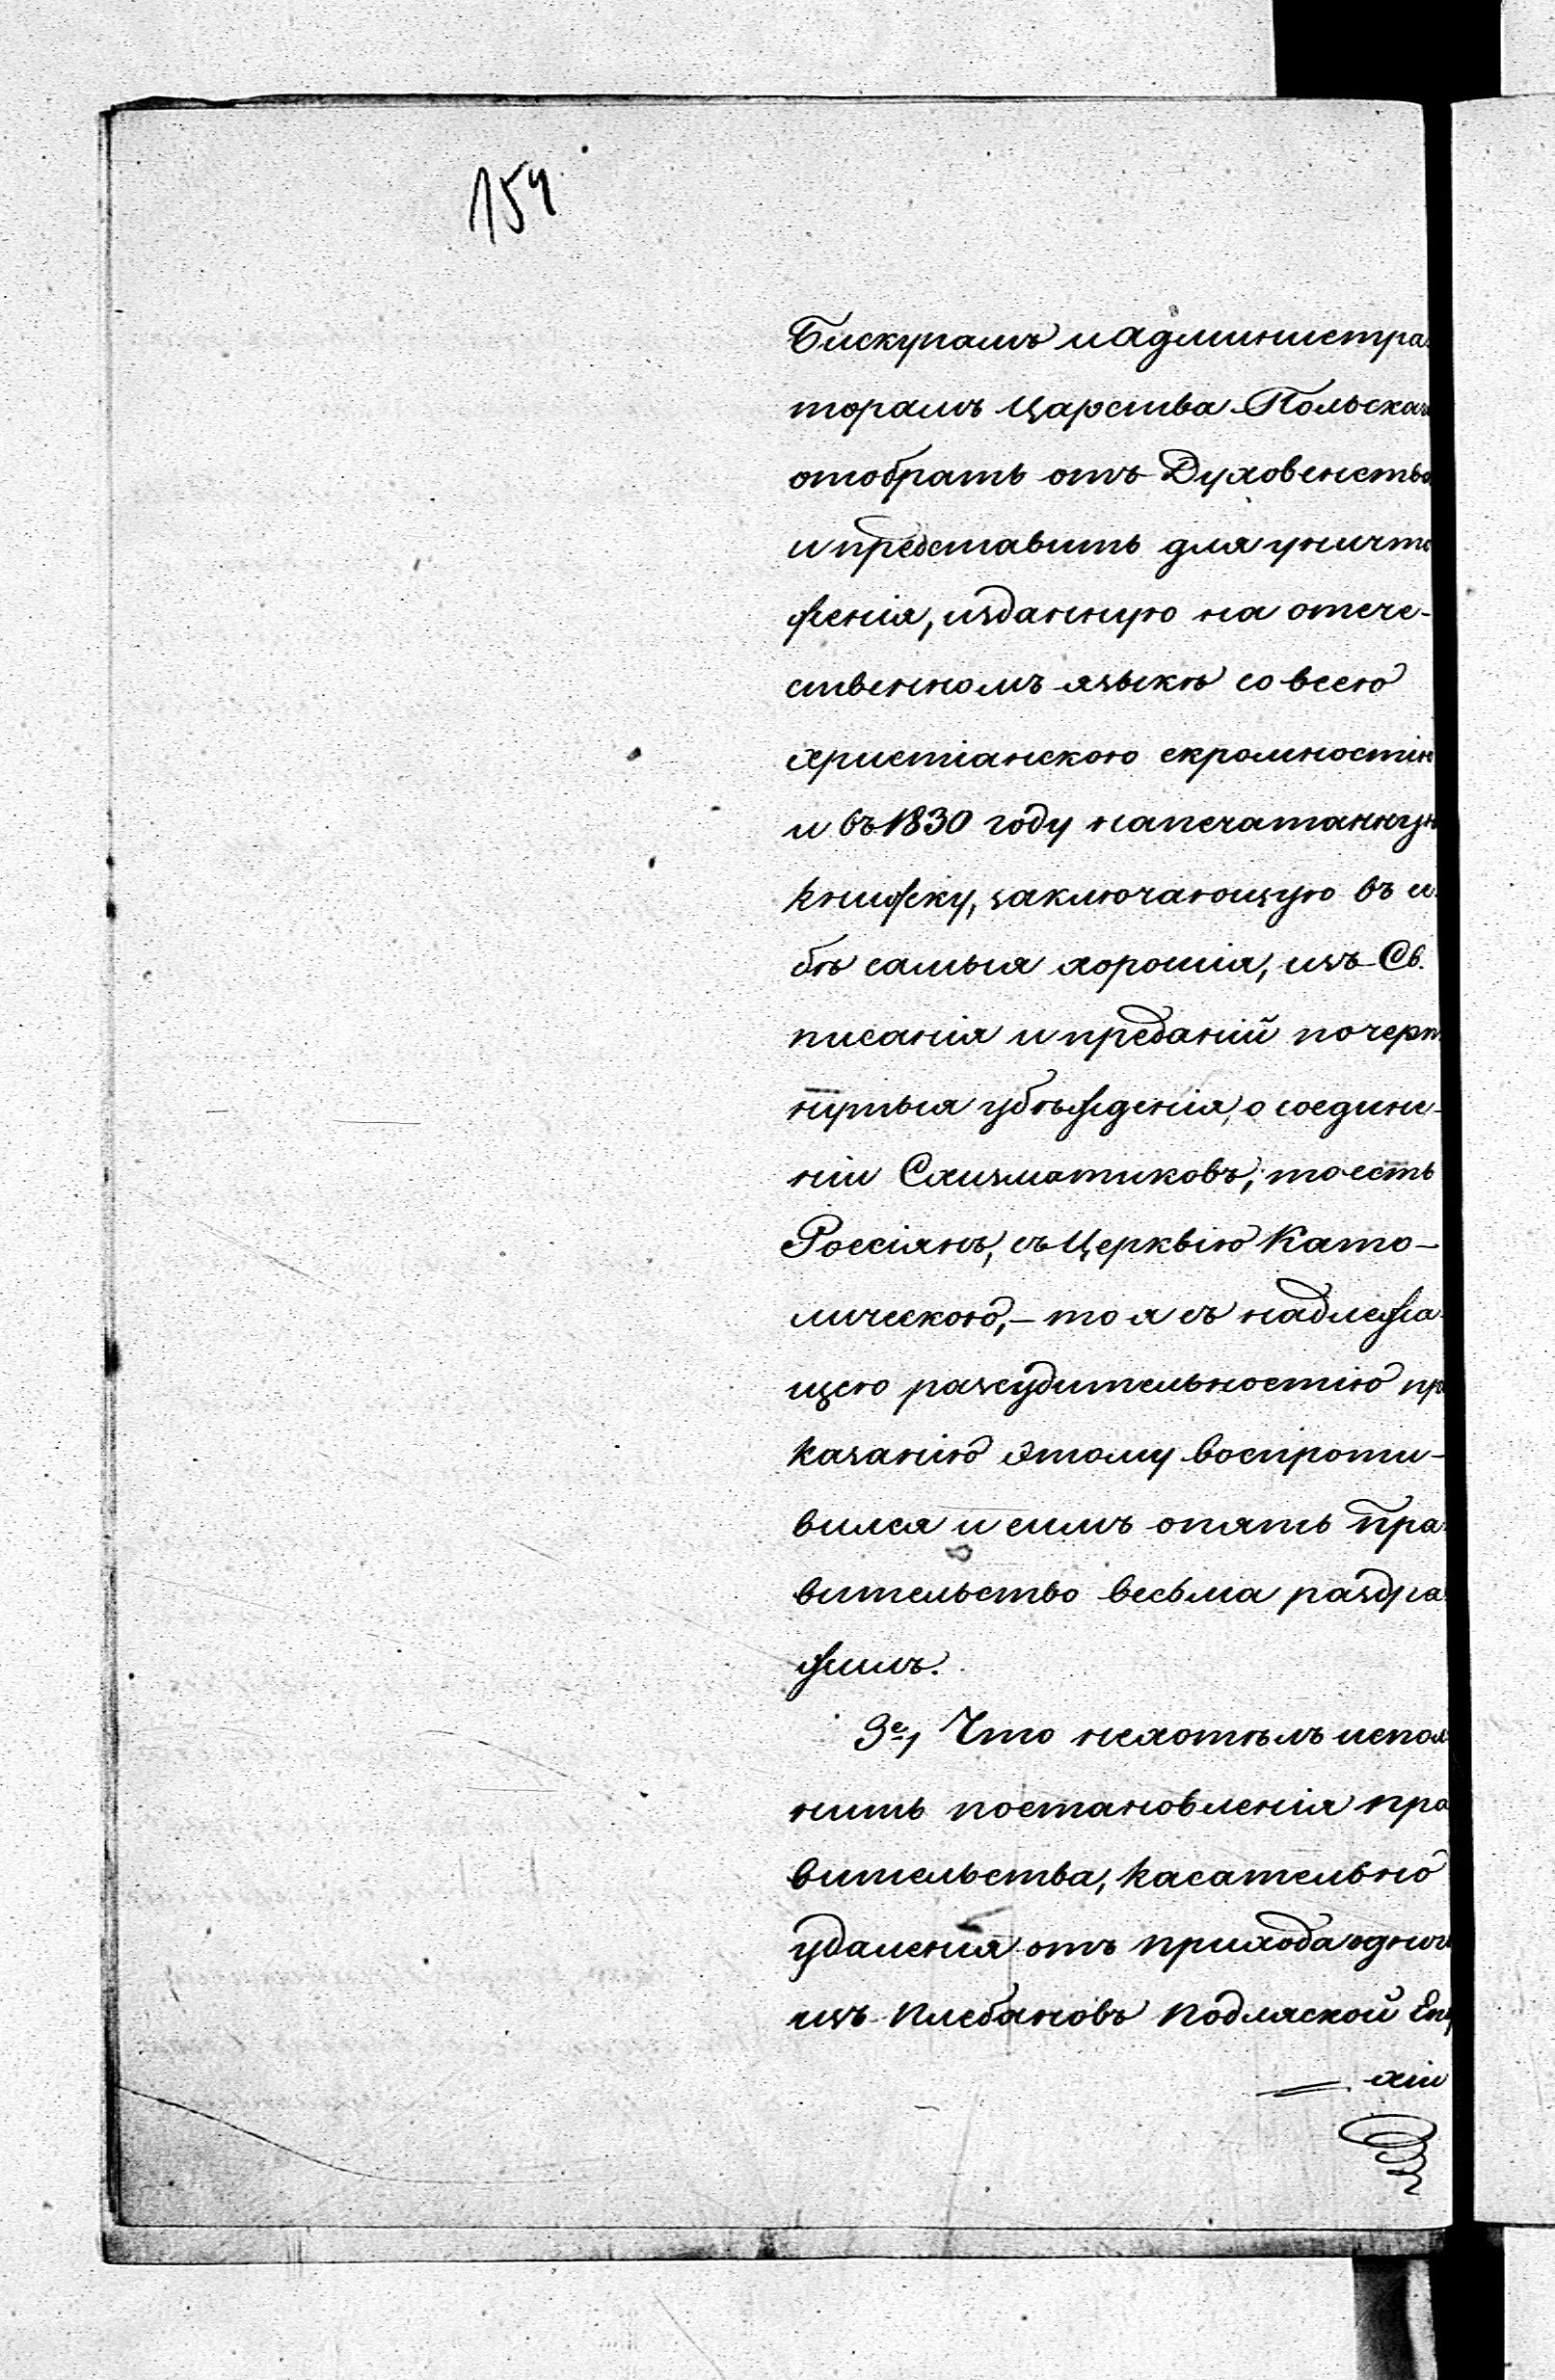 154
Бискупамъ и Администра-
торамъ Царства Польскаг
отобрать отъ Духовенства
и представить для уничто
женія, изданную на отече-
ственномъ языкѣ со всею
христіанскою скромностію
и въ 1830 году напечатанную
книжку, заключающую въ се
бѣ самыя хорошія, изъ Св.
писанія и преданій почерп-
нутыя убѣжденія, о соедине-
ніи Схизматиковъ, то есть
Россіянъ, съ Церквію Като-
лическою, – то я съ надлежа-
щею разсудительностію пр
казанію этому воспроти-
вился и симъ опять Пра-
вительство весьма раздра-
жилъ.
3е, Что нехотѣлъ испол
нить постановленія пра
вительства, касательно
удаленія отъ прихода одног
изъ Плебановъ Подляской Епар
хіи